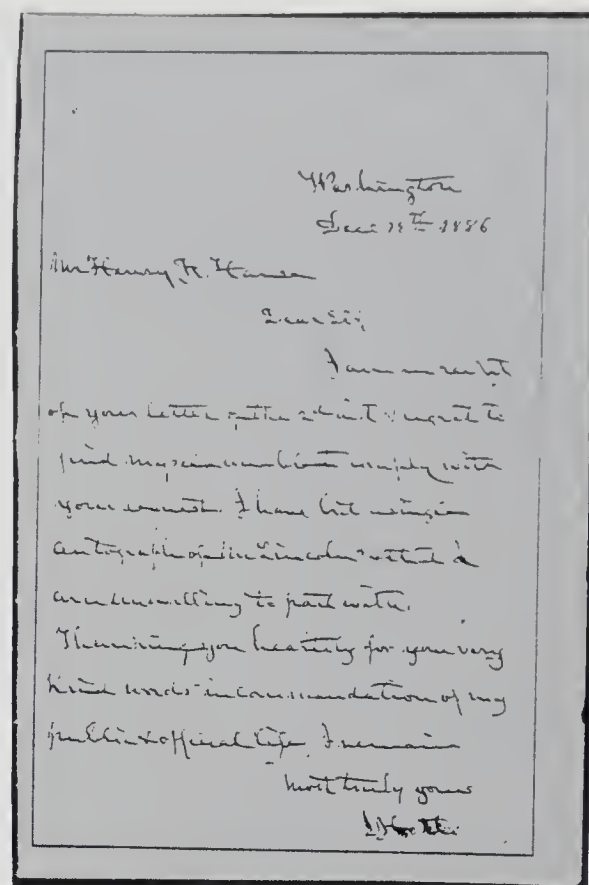 Washington
Dec 1886
Mr Henry
Dear Sir,
I am in receipt
of your letter of the & regret to
find myself unable to comply with
your request. I have but a single
autograph of Mr Lincoln which I
am unwilling to part with.
Thanking you heartily for your very
kind words in commendation of my
public & official life, I remain
most truly yours